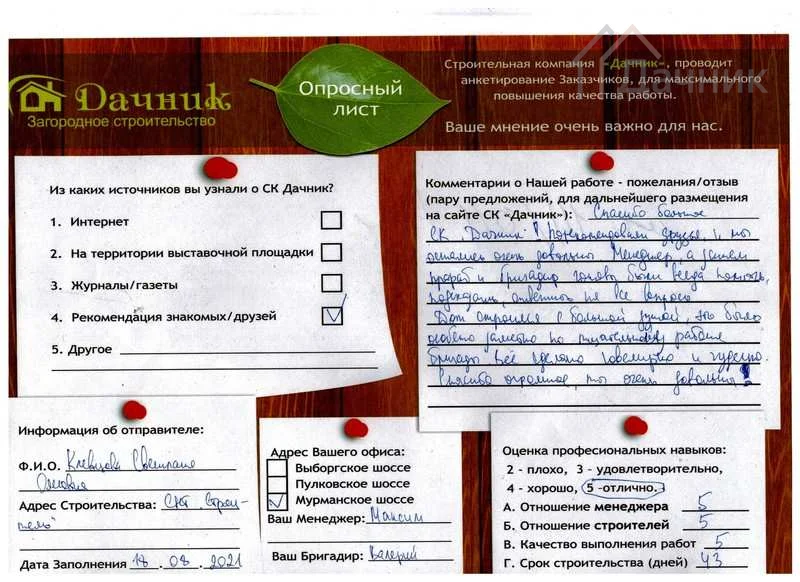 Дачник
Загородное строительство
Опросный
лист
Строительная компания «Дачник», проводит
анкетирование Заказчиков, для максимального
повышения качества работы.
Ваше мнение очень важно для нас.
ДАЧНИК
Из каких источников вы узнали о СК Дачник?
1. Интернет
2. На территории выставочной площадки
3. Журналы/газеты
4. Рекомендация знакомых/друзей
5. Другое
Комментарии о Нашей работе - пожелания/отзыв
(пару предложений, для дальнейшего размещения
на сайте СК «Дачник»): Спасибо большое
СК "Дачник"! Порекомендовали друзья, и мы
остались очень довольны. Менеджер, а затем
прораб и бригадир готовы были всегда помочь,
подсказать, ответить на все вопросы.
Дом строился с большой душой, это было
особено заметно по тщательному работе
бригады. Всё сделано ювелирно и чудесно.
Спасибо огромное, мы очень довольны!
Информация об отправителе:
Ф.И.О. Клевцова Светлана
Олеговна
Адрес Строительства: СНТ "Строи-
тель"
Дата Заполнения 18.08.2021
Адрес Вашего офиса:
Выборгское шоссе
Пулковское шоссе
Мурманское шоссе
Ваш Менеджер: Максим
Ваш Бригадир: Валерий
Оценка профессиональных навыков:
2 - плохо, 3 - удовлетворительно,
4 - хорошо, 5 -отлично.
А. Отношение менеджера 5
Б. Отношение строителей 5
В. Качество выполнения работ 5
Г. Срок строительства (дней) 43